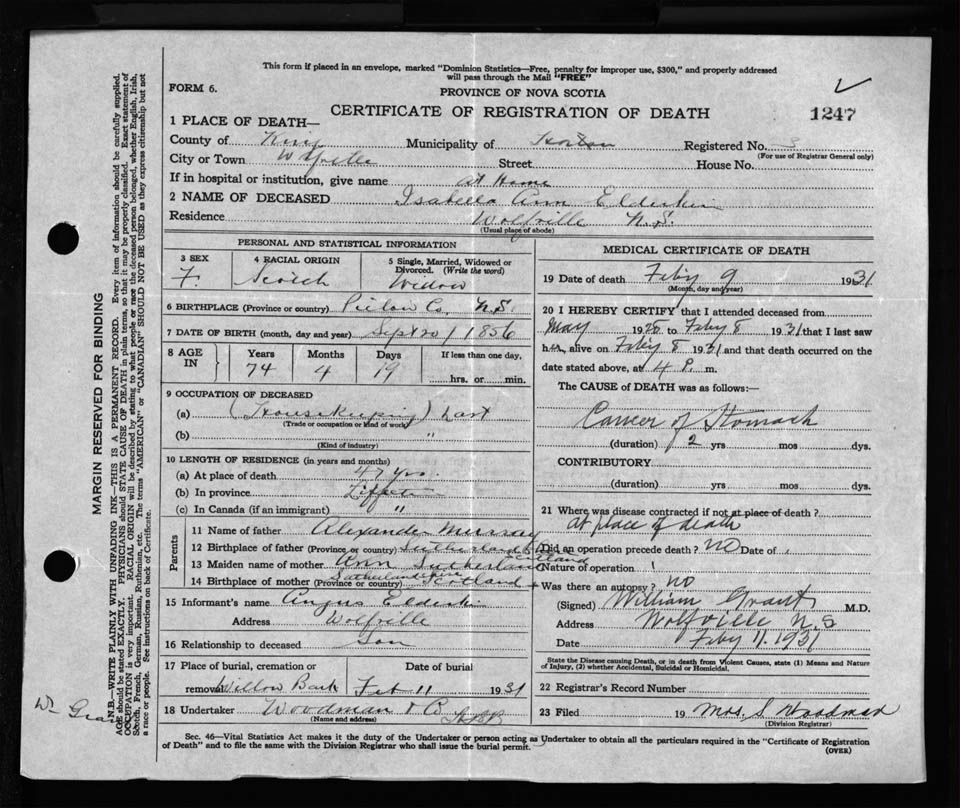 This form if placed in an envelope, marked "Dominion Statistics—Free, penalty for improper use, $300," and properly addressed
will pass through the Mail "FREE"
FORM 6.
PROVINCE OF NOVA SCOTIA
CERTIFICATE OF REGISTRATION OF DEATH
1247
1 PLACE OF DEATH—
County of Kings Municipality of Registered No. 3
(For use of Registrar General only)
City or Town Wolfville Street House No.
If in hospital or institution, give name at Home
2 NAME OF DECEASED Isabella Ann Elderkin
Residence Wolfville N.S.
(Usual place of abode)
PERSONAL AND STATISTICAL INFORMATION
3 SEX
F.
4 RACIAL ORIGIN
Scotch
5 Single, Married, Widowed or
Divorced. (Write the word)
Widow
6 BIRTHPLACE (Province or country) Pictou Co. N.S.
7 DATE OF BIRTH (month, day and year) Sept 20 / 1856
8 AGE
IN
Years
74
Months
4
Days
19
If less than one day,
hrs. or min.
9 OCCUPATION OF DECEASED
(a) (Housekeeping)
(Trade or occupation or kind of work)
(b) "
(Kind of industry)
10 LENGTH OF RESIDENCE (in years and months)
(a) At place of death yrs.
(b) In province Lifetime
(c) In Canada (if an immigrant) "
Parents
11 Name of father Alexander Murray
12 Birthplace of father (Province or country) Sutherland Scotland
13 Maiden name of mother Ann Sutherland
14 Birthplace of mother (Province or country) Sutherlandshire Scotland
15 Informant's name Angus Elderkin
Address Wolfville
16 Relationship to deceased Son
17 Place of burial, cremation or
removal Willow Bank
Date of burial
Feb 11 1931
18 Undertaker Woodman &
(Name and address)
MEDICAL CERTIFICATE OF DEATH
19 Date of death Feby 9 1931
(Month, day and year)
20 I HEREBY CERTIFY that I attended deceased from
May 1928 to Feby 8 1931 that I last saw
her alive on Feby 8 1931 and that death occurred on the
date stated above, at 4 P. m.
The CAUSE of DEATH was as follows:
Cancer of Stomach
(duration) 2 yrs mos dys.
CONTRIBUTORY
(duration) yrs mos dys.
21 Where was disease contracted if not at place of death?
at place of death
Did an operation precede death? NO Date of
Nature of operation
Was there an autopsy? no
(Signed) William Grant M.D.
Address Wolfville N.S
Date Feby 11. 1931
State the Disease causing Death, or in death from Violent Causes, state (1) Means and Nature
of Injury, (2) whether Accidental, Suicidal or Homicidal.
22 Registrar's Record Number
23 Filed 19 Mrs. S
(Division Registrar)
Sec. 46—Vital Statistics Act makes it the duty of the Undertaker or person acting as Undertaker to obtain all the particulars required in the "Certificate of Registration
of Death" and to file the same with the Division Registrar who shall issue the burial permit.
(OVER)
MARGIN RESERVED FOR BINDING
N.B.—WRITE PLAINLY WITH UNFADING INK—THIS IS A PERMANENT RECORD. Every item of information should be carefully supplied.
AGE should be stated EXACTLY. PHYSICIANS should STATE CAUSE OF DEATH in plain terms, so that it may be properly classified. Exact statement of
OCCUPATION is very important. RACIAL ORIGIN will be described by stating to what people or race the deceased person belonged, whether English, Irish,
Scotch, French, German, Russian, Ruthenian, etc. The terms "AMERICAN" or "CANADIAN" SHOULD NOT BE USED as they express citizenship but not
a race or people. See instructions on back of Certificate.